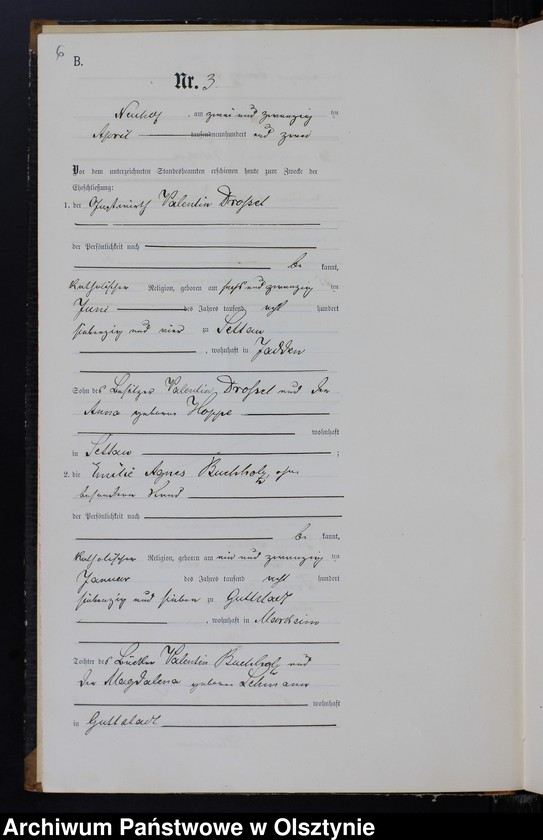 6
B.
Nr. 3
am zwei und zwanzig ten
April tausendneunhundert und zwei
Vor dem unterzeichneten Standesbeamten erschienen heute zum Zwecke der
Eheschließung:
1. der Gastwirth Valentin Drossel
der Persönlichkeit nach
be kannt,
katholischer Religion, geboren am sechs und zwanzig ten
Juni des Jahres tausend acht hundert
siebenzig und vier zu Settau
, wohnhaft in Jadden
Sohn des Besitzer Valentin Drossel und der
Anna geborene Hoppe
wohnhaft
in Settau ;
2. die Emilie Agnes Buchholz, ohne
besonderen Stand
der Persönlichkeit nach
be kannt,
katholischer Religion, geboren am ein und zwanzig ten
Januar des Jahres tausend acht hundert
siebenzig und sieben zu Guttstadt
, wohnhaft in
Tochter des Valentin Buchholz und
der Magdalena geborene Lehmann
wohnhaft
in Guttstadt
Archiwum Państwowe w Olsztynie